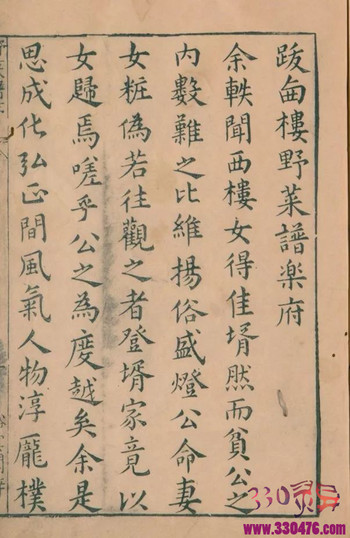 跋西樓野菜譜楽府
余軼聞西樓女得佳壻然而貧公之
內數難之比維揚俗盛燈公命妻
女粧偽若往觀之者登壻家竟以
女歸焉嗟乎公之為度越矣余是
思成化弘正間風氣人物淳龐樸
330
www.330476.com